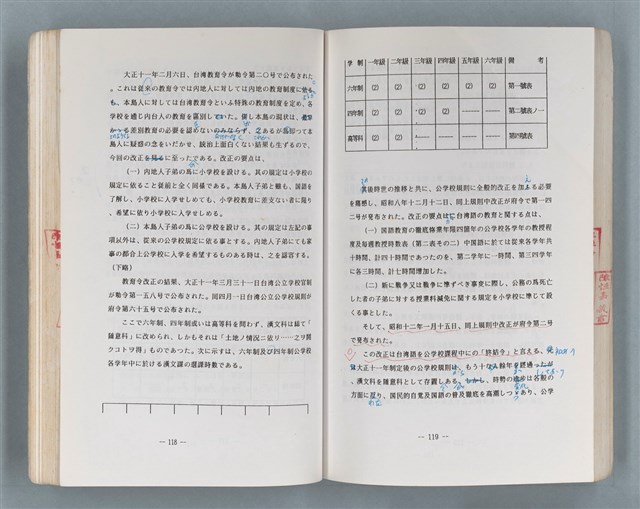 大正十一年二月六日、台湾教育令が勅令第二〇号で公布された
。これは従来の教育令では内地人に対しては内地の教育制度に
も、本島人に対しては台湾教育令といふ特殊の教育制度を定め、各
学校を通じ内台人の教育を區別して
差別教育の必要を認めない
島人に疑惑の念をいだかせ、統治上面白くない結果も生ずるので、
今回の改正を見るに至ったである。改正の要点は、
（一）内地人子弟の爲に小学校を設ける。其の規定は小学校の
規定に依ること従前と全く同様である。本島人子弟と雖も、国語を
了解し、小学校に入学せしめても、小学校教育に差支ない者に限り
、希望に依り小学校に入学せしめる。
（二）本島人子弟の爲に公学校を設ける。其の規定は左記の事
項以外は、従来の公学校規定に依る事とする。内地人子弟にても家
事の都合上公学校に入学を希望するものある時は、之を認容する。
（下略）
教育令改正の結果、大正十一年三月三十一日台湾公立学校官制
が勅令第一五八号で公布された。同四月一日台湾公立学校規則が
府令第六十五号で公布された。
ここで六年制、四年制或いは高等科を問わず、漢文科は揃て「
隨意科」に改められ、しかもそれは「土地ノ情況ニ依リ……之ヲ闕
クコトヲ得」ものであつた。次に示すは、六年制及び四年制公学校
各学年中に於ける漢文課の選課時数である。
— 118 —
学制 一年級 二年級 三年級 四年級 五年級 六年級 備考
六年制 (2) (2) (2) (2) (2) (2) 第一號表
四年制 (2) (2) (2) (2) 第二號表ノ一
高等科 (2) (2) 第四號表
其後時世の推移と共に、公学校規則に全般的改正を加える必要
を痛感し、昭和八年十二月十二日、同上規則中改正が府令第一四
二号が発布された。改正の要点は台湾語の教育と関する点は、
（一）国語教育の徹底修業年限四箇年の公学校各学年の教授程
度及毎週教授時数表（第二表その二）中国語に於ては従来各学年共
十時間、計四十時間であつたのを、第二学年に一時間、第三四学年
に各三時間、計七時間増加した。
（二）新に戰爭又は戰爭に準ずべき事変に際し、公務の爲死亡
した者の子弟に対する授業料減免に関する規定を小学校に準じて設
くる事とした。
そして、昭和十二年一月十五日、同上規則中改正が府令第二号
で発布された。
この改正は台湾語を公学校課程中にの「終結令」と言える。
大正十一年制定後の公学校規則は、もう十
、漢文科を隨意科として存置しある。しかし、時勢の進歩は各般の
方面に亘り、国民的自覚及国語の普及徹底を高潮しつゝあり、公学
— 119 —